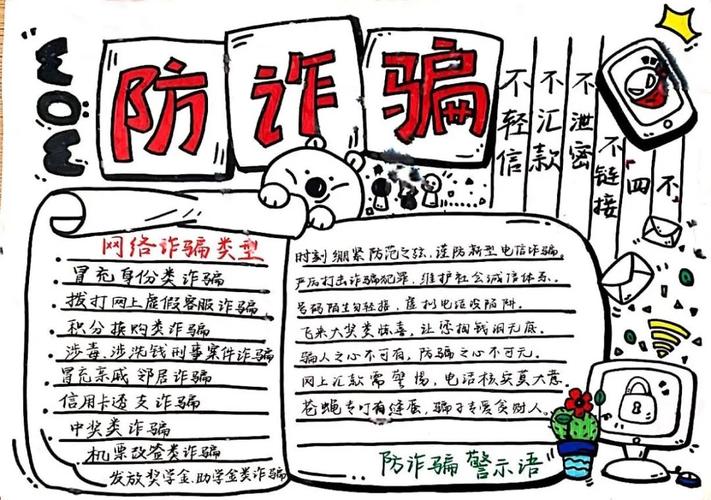 防诈骗
不轻信
不汇款
不泄密
不链接
四不
网络诈骗类型
冒充身份类诈骗
拨打网上虚假客服诈骗
积分换购类诈骗
涉毒、涉洗钱刑事案件诈骗
冒充亲戚邻居诈骗
信用卡透支诈骗
中奖类诈骗
机票改签类诈骗
发放奖学金、助学金类诈骗
时刻绷紧防范之弦，谨防新型电信诈骗。
严厉打击诈骗犯罪，维护社会诚信体系。
号码陌生勿轻接，虚拟电话设陷阱。
飞来大奖莫惊喜，让您掏钱洞无底。
骗人之心不可有，防骗之心不可无。
网上汇款需警惕，电话核实莫大意。
苍蝇专叮有缝蛋，骗子专爱贪财人。
防诈骗警示语